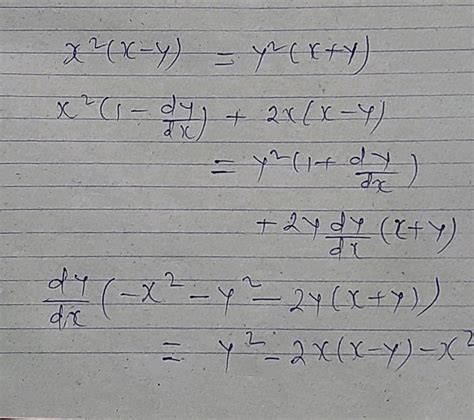 x²(x-y) = y²(x+y)
x²(1 - dy/dx) + 2x(x-y)
= y²(1 + dy/dx)
+ 2y dy/dx (x+y)
dy/dx (-x² - y² - 2y(x+y))
= y² - 2x(x-y) - x²